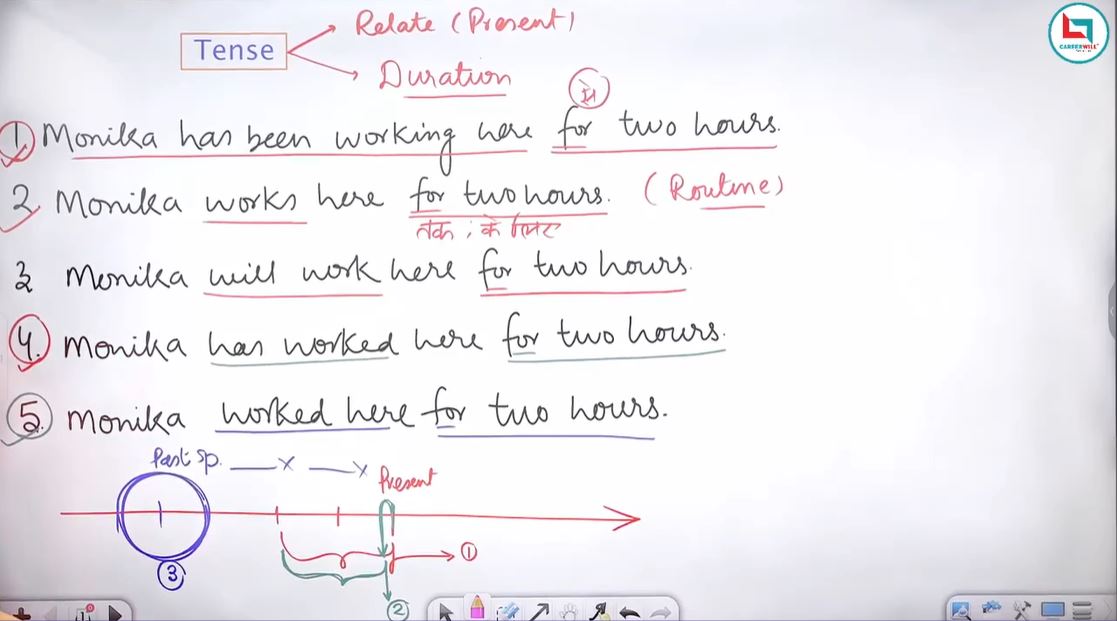 Relate (Present)
Tense
Duration
CAREERWILL
से
1. Monika has been working here for two hours.
2. Monika works here for two hours. (Routine)
तक ; के लिए
3 Monika will work here for two hours.
4. Monika has worked here for two hours.
5. Monika worked here for two hours.
Past sp. x x
Present
1
3
2